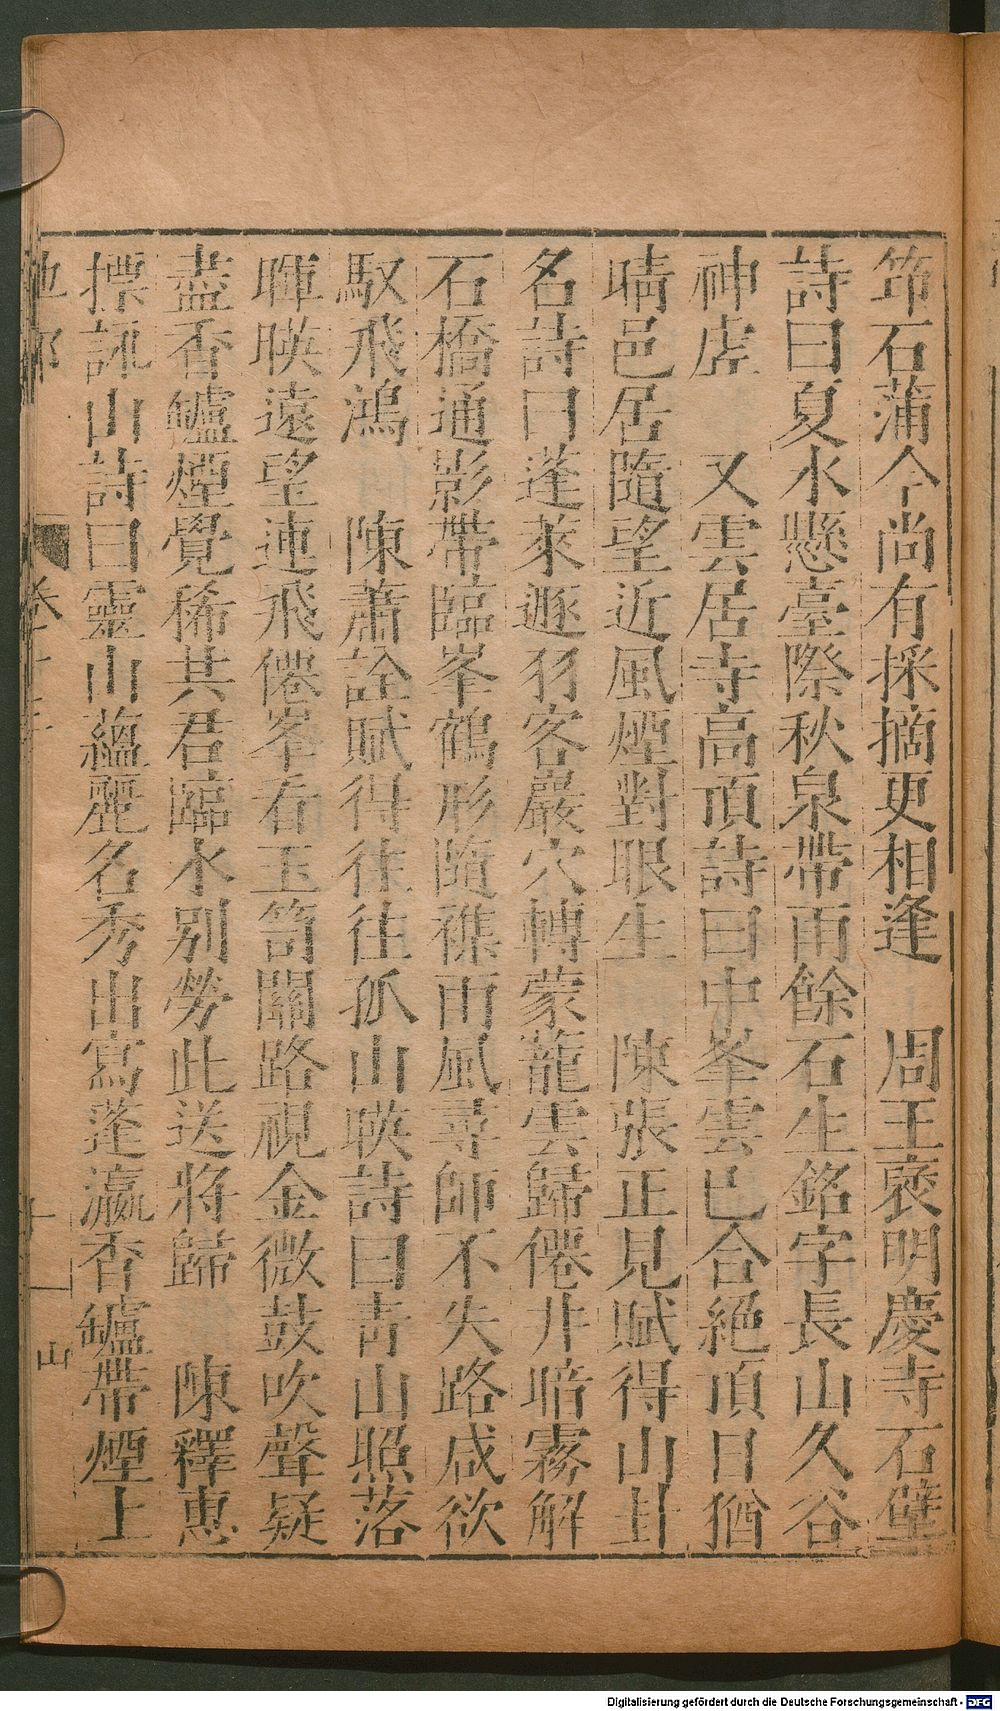 筇石蒲今尚有採摘更相逢　周王褒明慶寺石壁
詩曰夏水懸臺際秋泉帶雨餘石生銘字長山久谷
神虗　又雲居寺高頂詩曰中峯雲已合絶頂日猶
晴邑居隨望近風煙對眼生　陳張正見賦得山卦
名詩曰蓬萊遯羽客巖穴轉蒙蘢雲歸僊井暗霧解
石橋通影帶臨峯鶴形隨襍雨風尋師不失路咸欲
馭飛鴻　陳蕭詮賦得往往孤山暎詩曰靑山照落
暉暎遠望連飛僊峯看玉笥關路視金微鼓吹聲疑
盡香鑪煙覺稀共君臨水别勞此送將歸　陳釋惠
摽詠山詩曰靈山蘊麗名秀出寫蓬瀛香鑪帶煙上
山
Digitalisierung gefördert durch die Deutsche Forschungsgemeinschaft - DFG